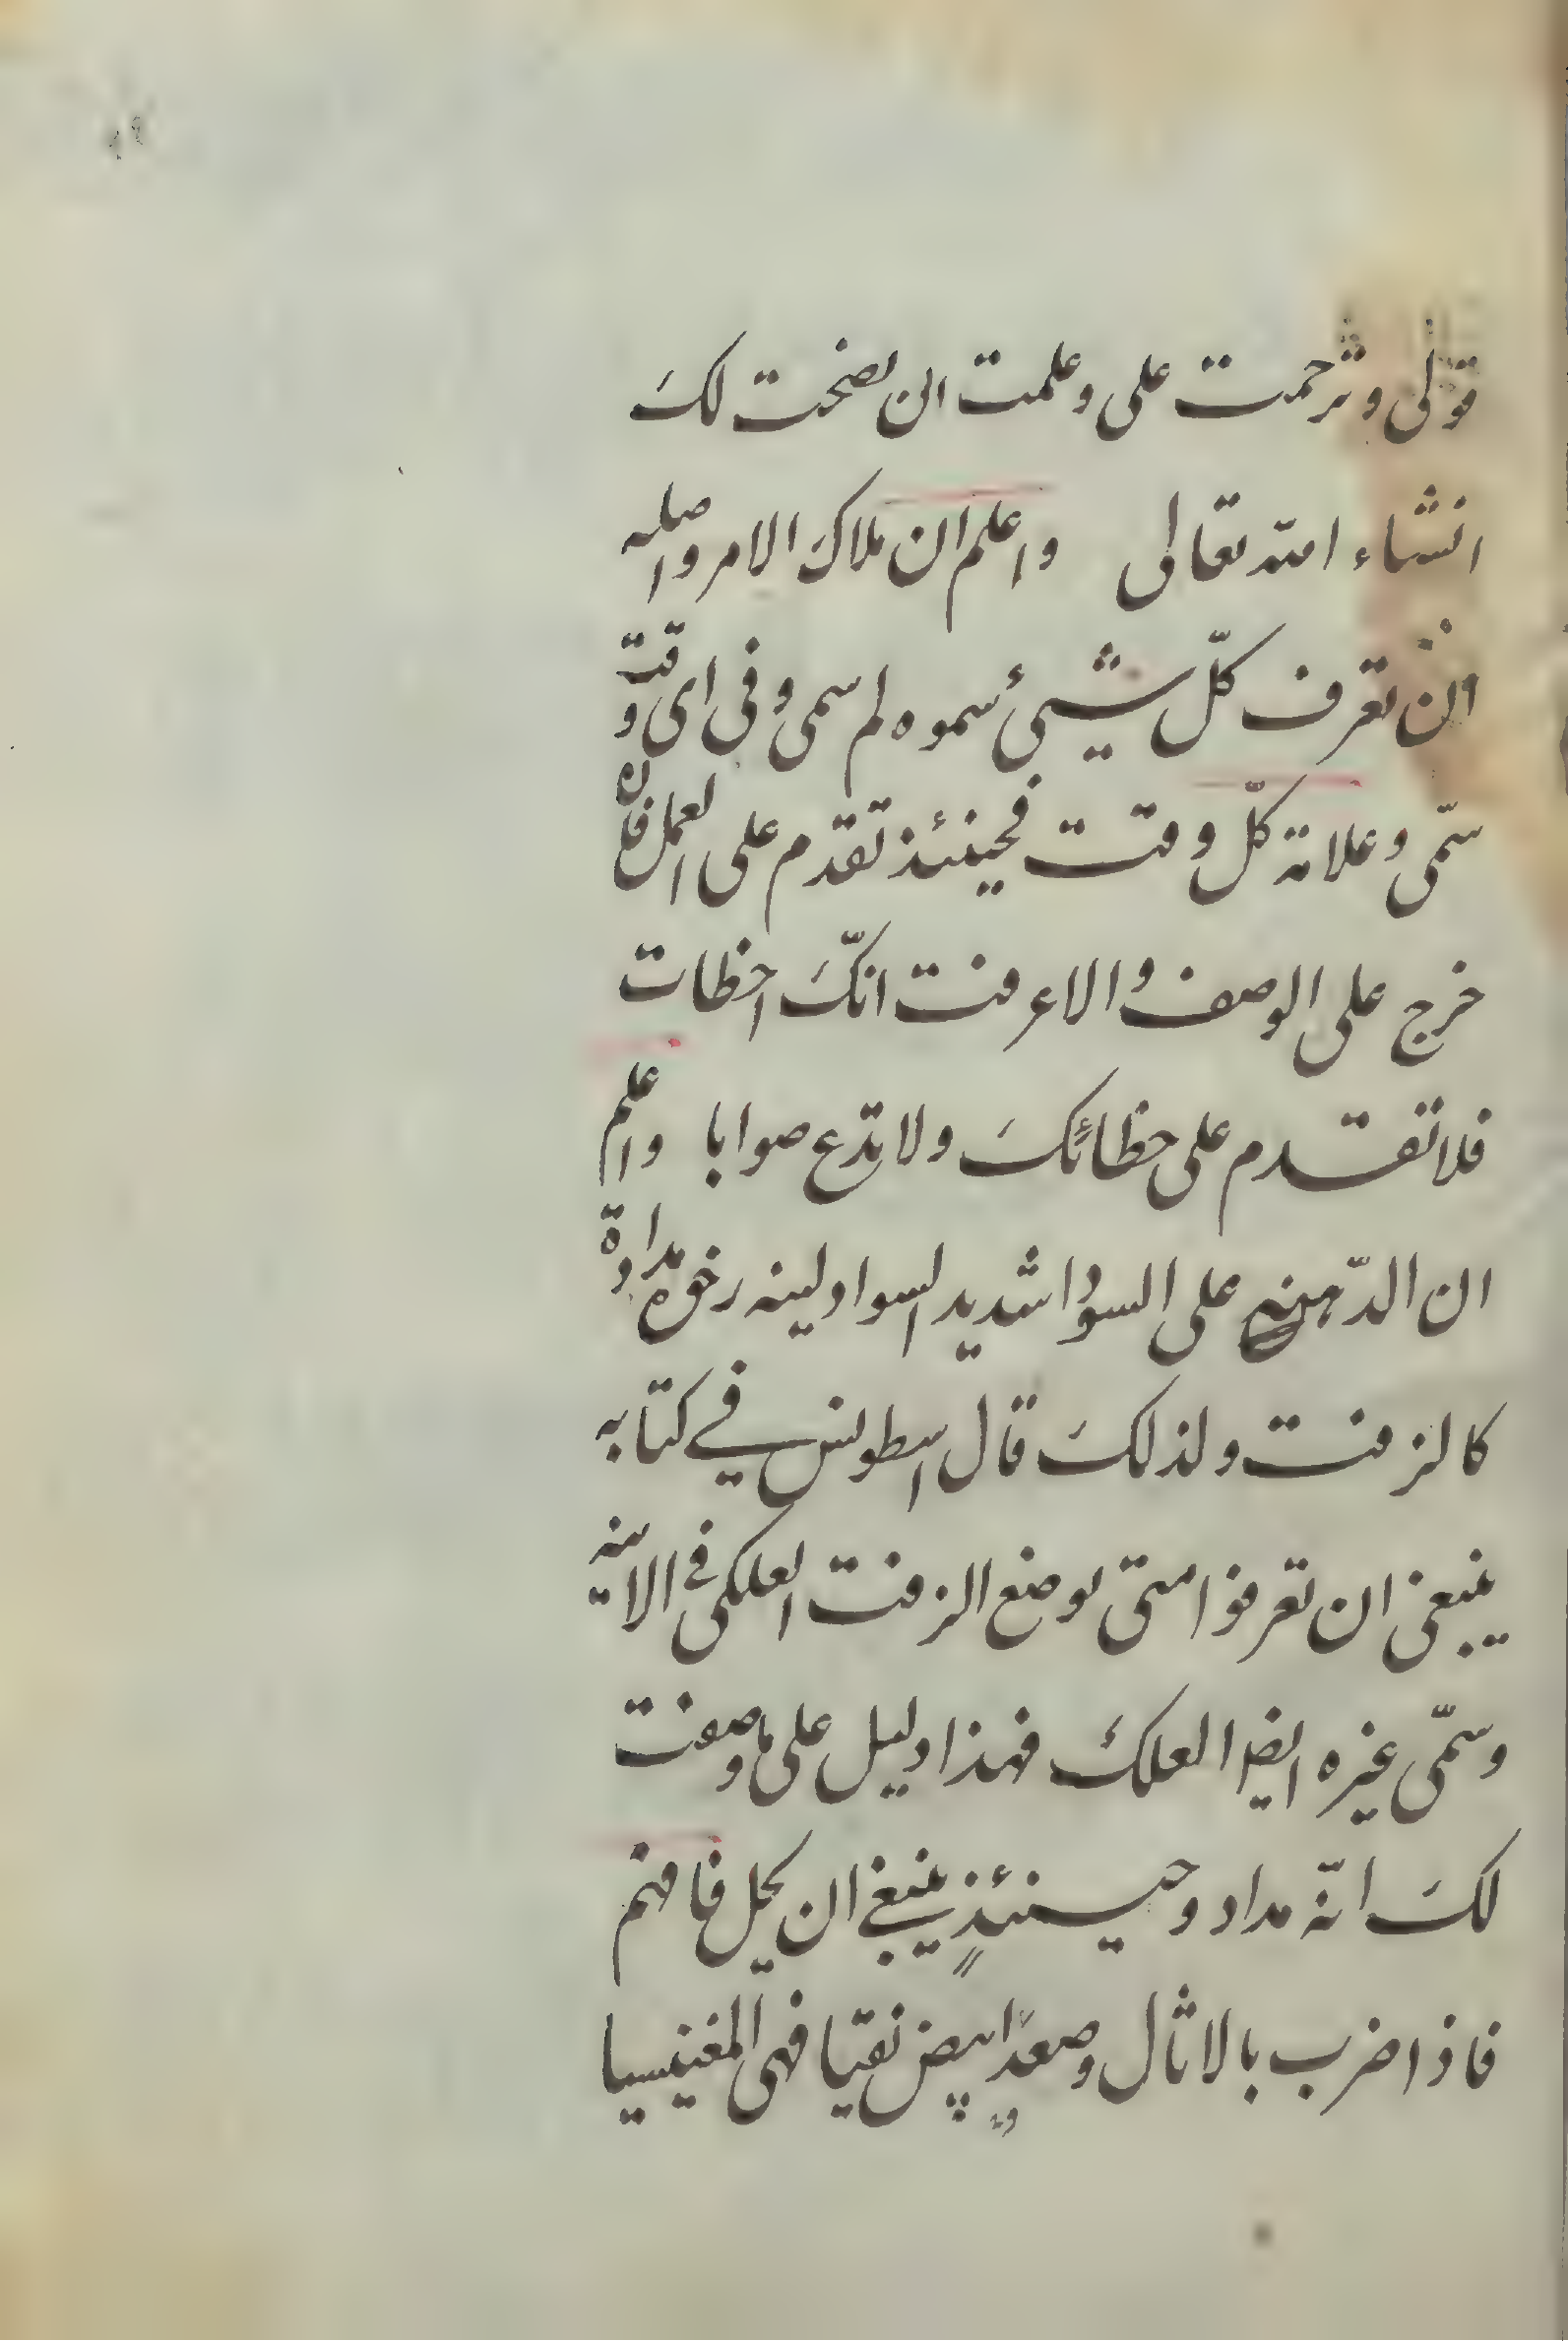 قولی وترحمت علی وعلمت ان نصحت لکَ
انشاء الله تعالی واعلم ان ملاکَ الامر واصله
ان تعرف کلّ شیئ سموه لم سمی وفی ای وقت
سمّی وعلامة کلّ وقت فحینئذ تقدم علی العمل فان
خرج علی الوصف والا عرفت انکَّ اخطات
فلا تقدم علی خطائکَ ولا تدع صوابا واعلم
ان الدّهنه علی السودا شدید السواد لینه رخوه مدادة
کالزفت ولذلکَ قال اسطولس فی کتابه
ینبغی ان تعرفوا متی یوضع الزفت العلکی فی الانیه
وسمّی غیره ایضا العلکَ فهذا دلیل علی ما وصفت
لکَ انّه مداد وحینئذٍ ینبغی ان یحل فافهم
فاذا ضرب بالاثال وصعدَ ابیض نقیا فهی المغنیسیا